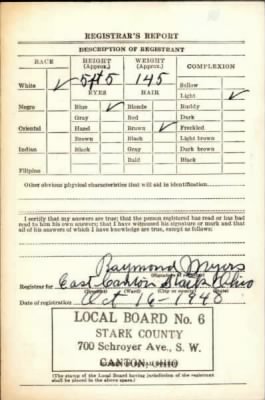 REGISTRAR'S REPORT
DESCRIPTION OF REGISTRANT
RACE HEIGHT (Approx.) WEIGHT (Approx.) COMPLEXION
5ft 5 145 Sallow
White ✓ EYES HAIR Light ✓
Negro Blue ✓ Blonde Ruddy
Gray Red Dark
Oriental Hazel Brown ✓ Freckled
Brown Black Light brown
Indian Black Gray Dark brown
Bald Black
Filipino
Other obvious physical characteristics that will aid in identification
I certify that my answers are true; that the person registered has read or has had
read to him his own answers; that I have witnessed his signature or mark and that
all of his answers of which I have knowledge are true, except as follows:
Raymond Myers
Registrar for East Canton Stark Ohio
Date of registration Oct 16-1940
LOCAL BOARD No. 6
STARK COUNTY
700 Schroyer Ave., S. W.
CANTON, OHIO
(The stamp of the Local Board having jurisdiction of the registrant
shall be placed in the above space.)